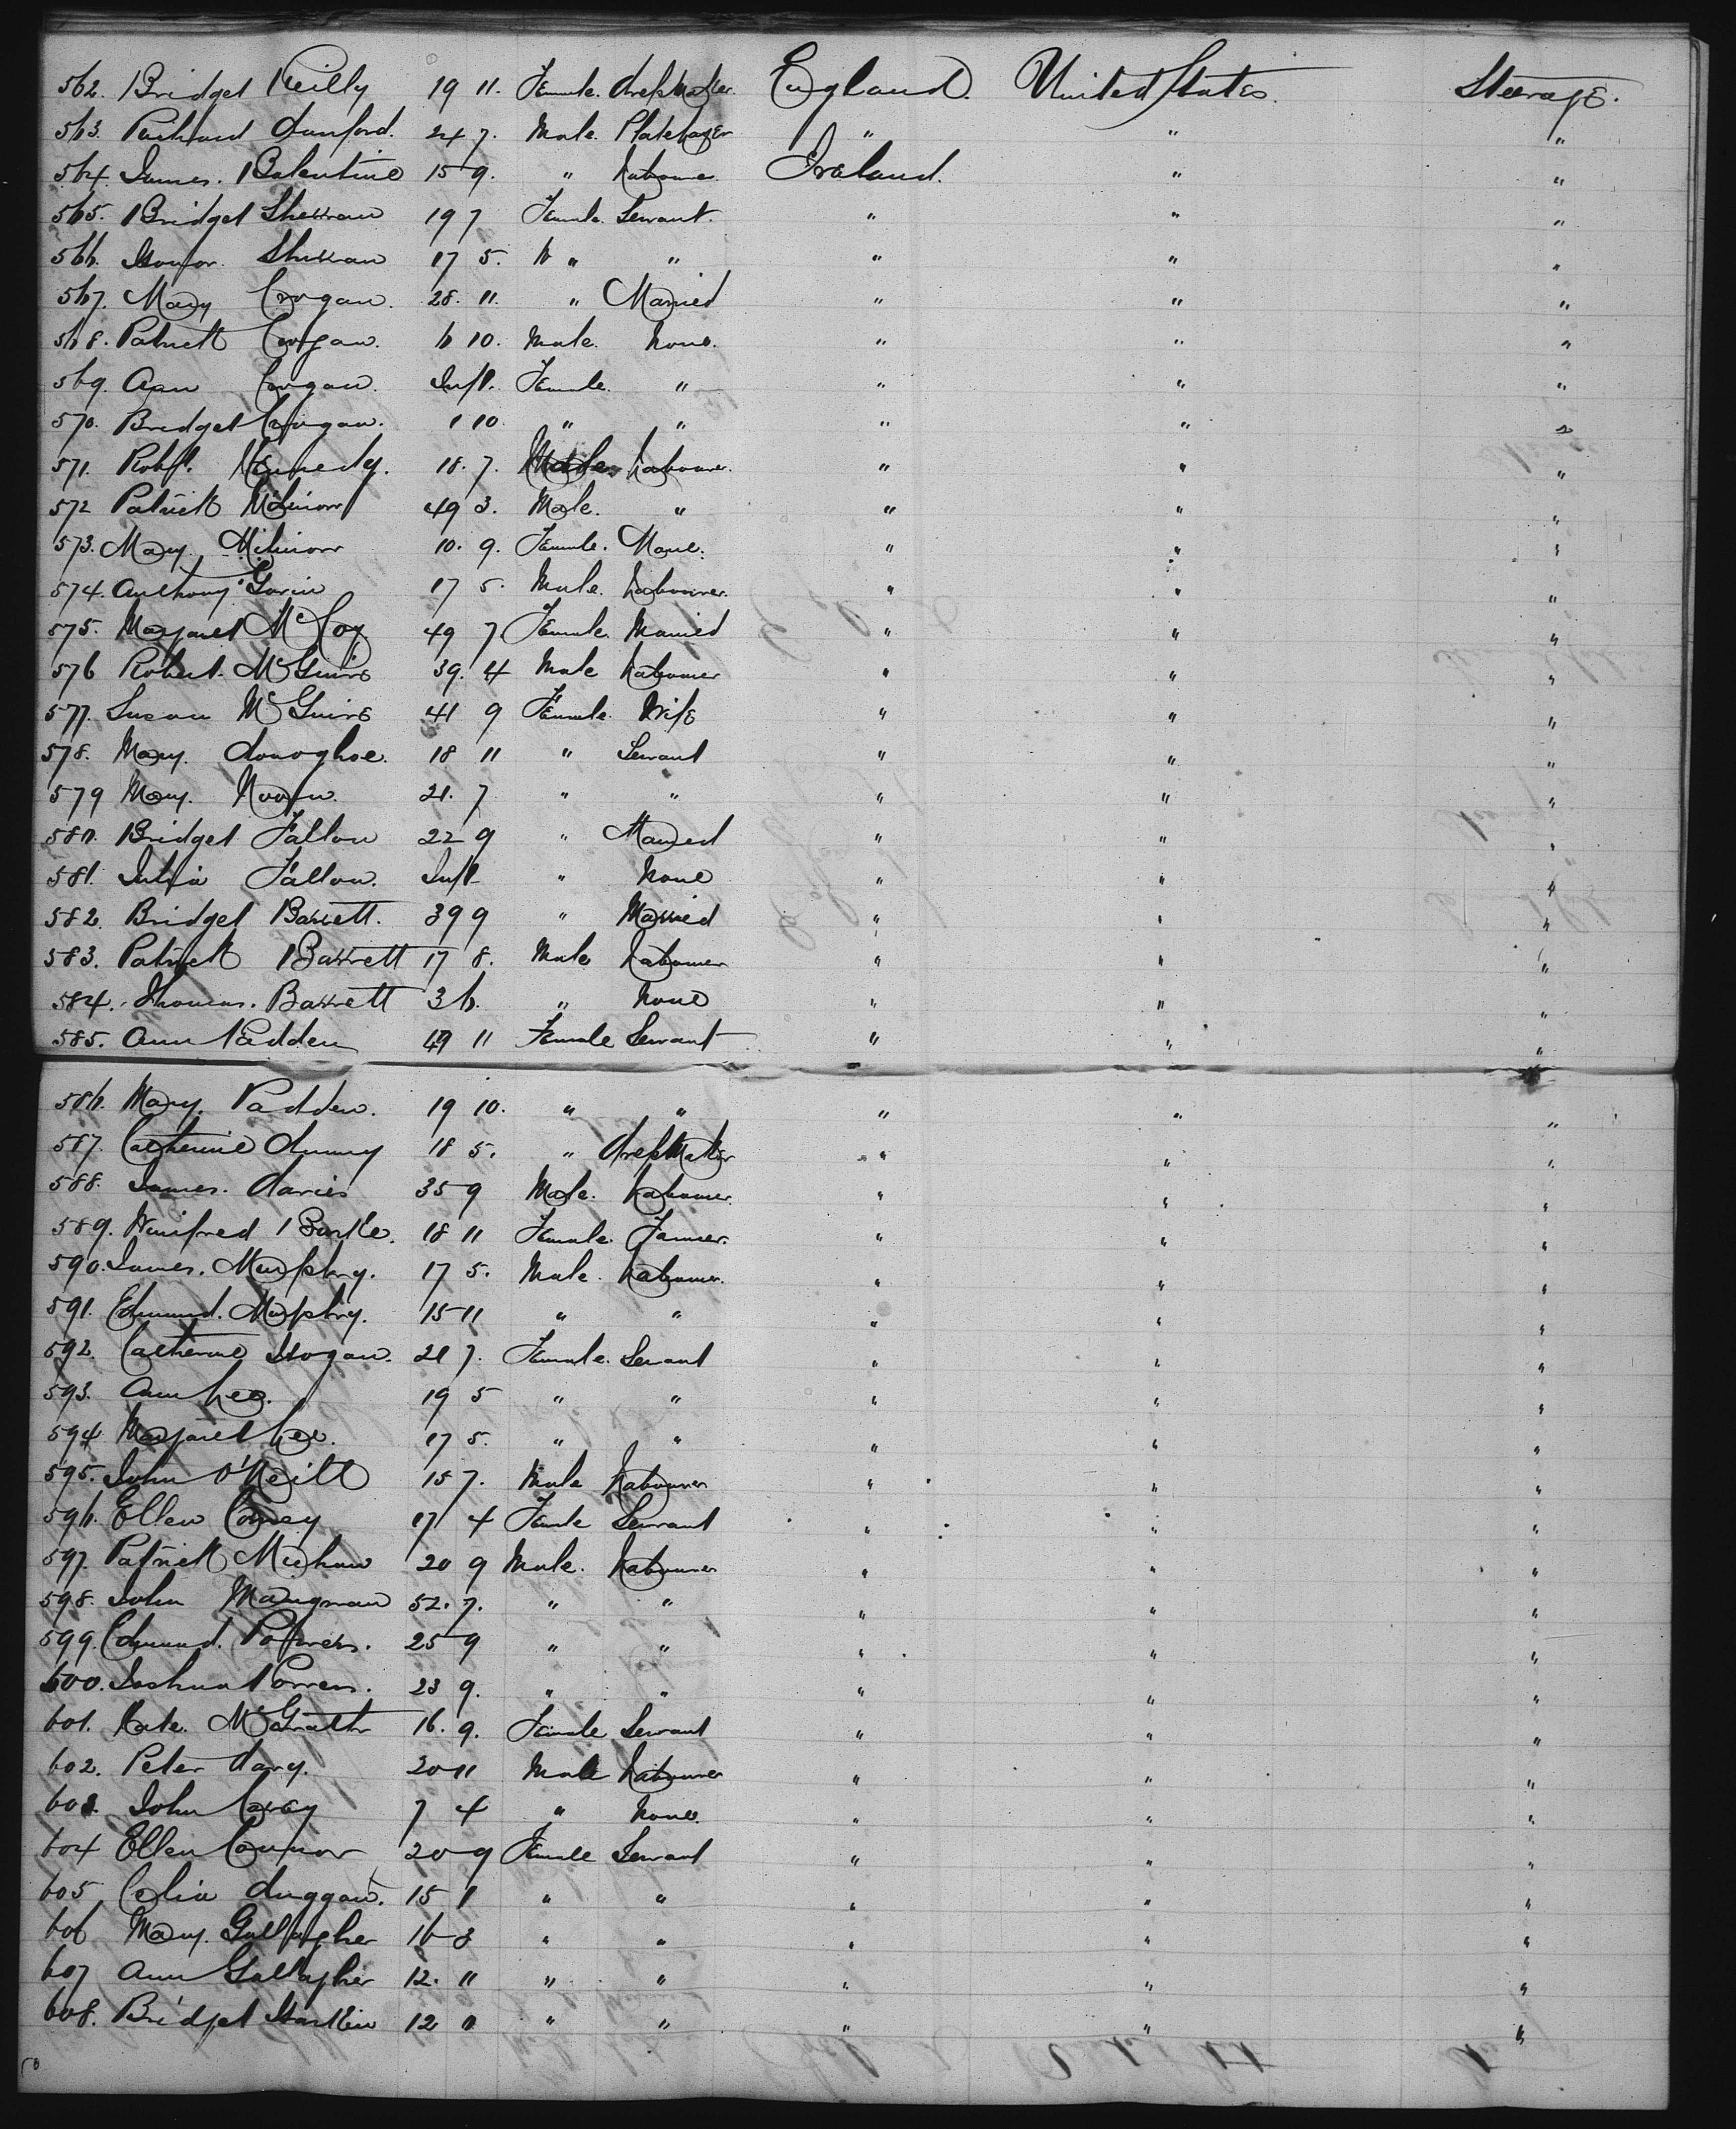 562. Bridget Reilly 19 11. Female. dressMaker. England. United States. Steerage.
563. Richard dunford. 24 7. Male. Platelayer " " "
564. James. Balentine 15 9. " Labourer. Ireland. " "
565. Bridget Sherran 19 7 Female. Servant. " " "
566. Honor. Sherran 17 5. " " " " "
567. Mary Crogan. 28. 11. " Married " " "
568. Patrick Crogan. 6 10. Male. None. " " "
569. Ann Crogan. Inft. Female. " " " "
570. Bridget Crogan. 1 10 " " " " "
571. Robt. Kennedy. 18. 7. Male. Labourer. " " "
572 Patrick 49 3. Male. " " " "
573. Mary. 10. 9. Female. None. " " "
574. Anthony Gavin 17 5. Male. Labourer. " " "
575. Margaret McCoy 49 7 Female. Married " " "
576 Robert. McGuire 39. 4 Male Labourer " " "
577. Susan McGuire 41 9 Female. Wife " " "
578. Mary. donoghoe. 18 11 " Servant " " "
579 Mary. Noon. 21. 7 " " " " "
580. Bridget Fallon 22 9 " Married " " "
581. Julia Fallon. Inft " None " " "
582. Bridget Barrett. 39 9 " Married " " "
583. Patrick Barrett 17 8. Male Labourer " " "
584. Thomas. Barrett 3 6. " None " " "
585. Ann Padden 19 11 Female Servant " " "
586. Mary. Padden. 19 10. " " " " "
587. Catherine 18 5. " dressMaker " " "
588. James. davies 35 9 Male. Labourer. " " "
589. Winifred Burke. 18 11 Female. Farmer. " " "
590. James. Murphy. 17 5. Male. Labourer. " " "
591. Edmund. Murphy. 15 11 " " " " "
592. Catherine Hogan. 21 7. Female. Servant " " "
593. Ann Lee. 19 5 " " " " "
594 Margaret Lee. 17 5. " " " " "
595. John O'Neill 15 7. Male Labourer " " "
596. Ellen 17 4 Female Servant " " "
597. Patrick Meehan 20 9 Male. Labourer " " "
598. John Mangnan 52. 7. " " " " "
599. Edmund. 25 9 " " " " "
600. Joshua 23 9. " " " " "
601. Kate. McGrath 16. 9. Female Servant " " "
602. Peter 20 11 Male Labourer " " "
603. John 7 4 " None. " " "
604 Ellen Connor 20 9 Female Servant " " "
605 Celia duggan. 15 1 " " " " "
606 Mary. Gallagher 16 3 " " " " "
607 Ann Gallagher 12. 11 " " " " "
608. Bridget Harkin 12 " " " " "